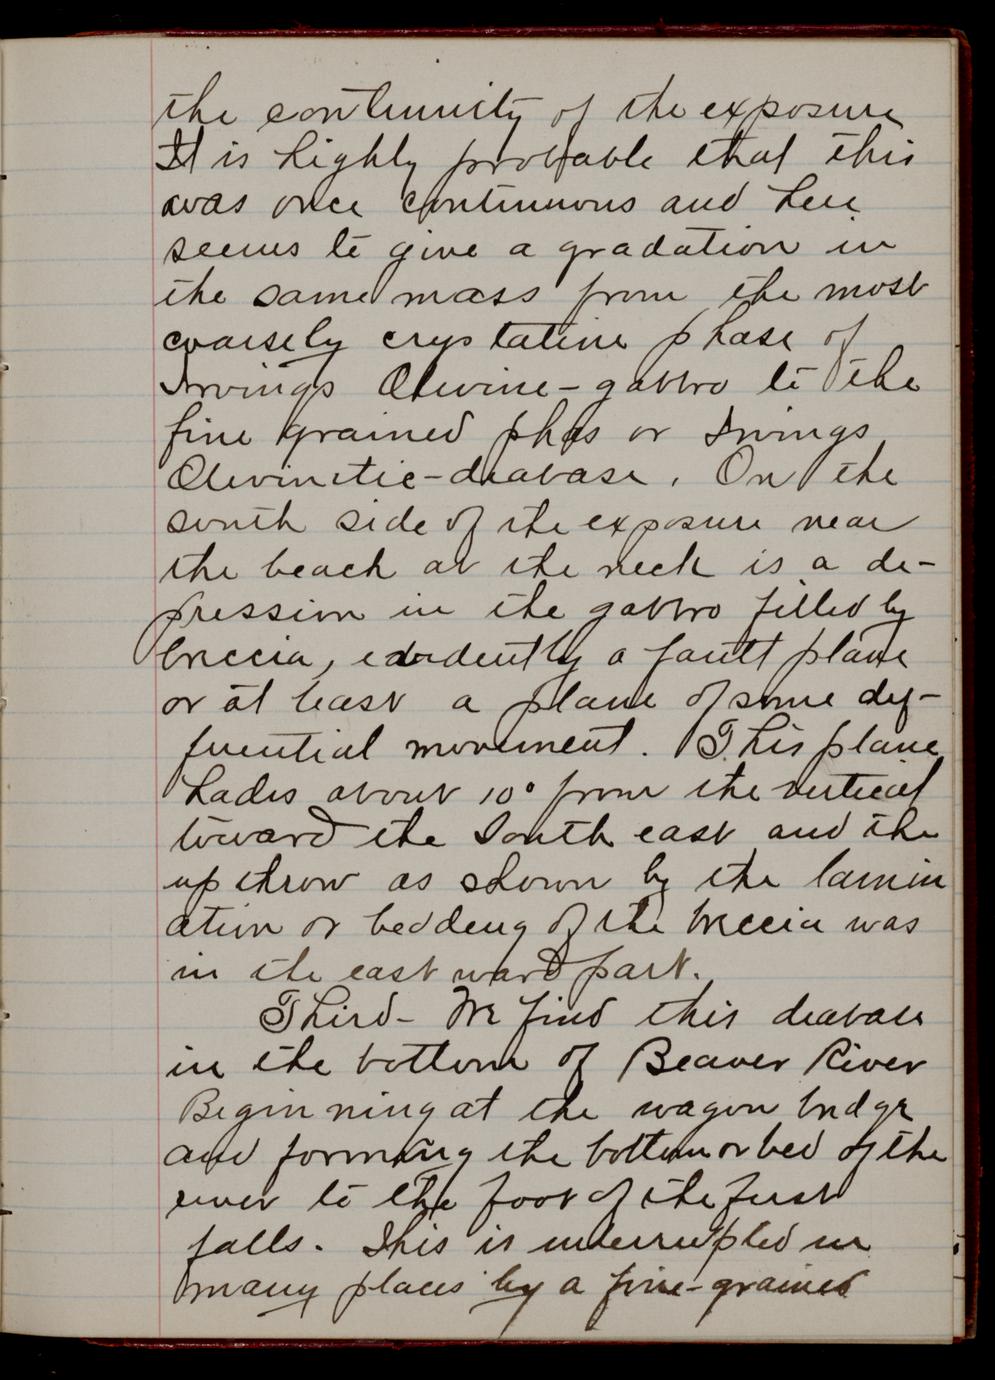 the continuity of the exposure
It is highly probable that this
was once continuous and here
seems to give a gradation in
the same mass from the most
coarsely crystaline phase of
Irvings Olivine-gabbro to the
fine grained phas or Irvings
Olivinitic-diabase. On the
south side of the exposure near
the beach at the neck is a de-
pression in the gabbro filled by
breccia, evidently a fault plane
or at least a plane of some dif-
ferential movement. This plane
hades about 10° from the vertical
toward the South east and the
up throw as shown by the lamin
ation or bedding of the breccia was
in the east ward part.
Third- We find this diabase
in the bottom of Beaver River
Beginning at the wagon bridge
and forming the bottom or bed of the
river to the foot of the first
falls. This is interrupted in
many places by a fine-grained